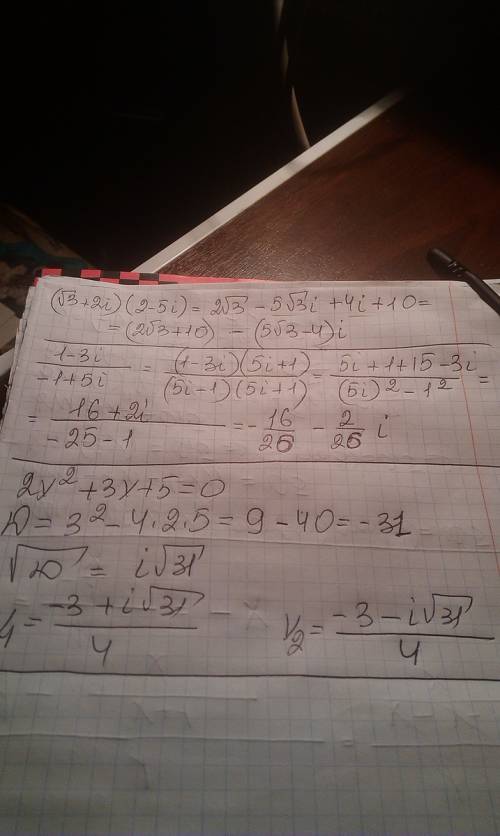 (√3+2i)(2-5i) = 2√3 - 5√3i + 4i + 10 =
= (2√3+10) - (5√3-4)i
(1-3i)/(-1+5i) = (1-3i)(5i+1)/(5i-1)(5i+1) = (5i+1+15-3i)/((5i)²-1²) =
= (16+2i)/(-25-1) = -16/26 - 2/26 i
2x²+3x+5=0
D = 3²-4·2·5 = 9-40 = -31
√D = i√31
x₁ = (-3+i√31)/4 x₂ = (-3-i√31)/4